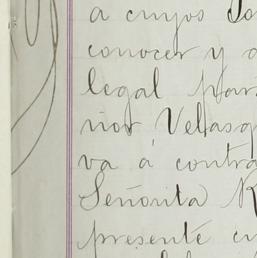 a cuyos
conocer y
legal par
ñor Velasq
va á contra
Señorita R
presente en